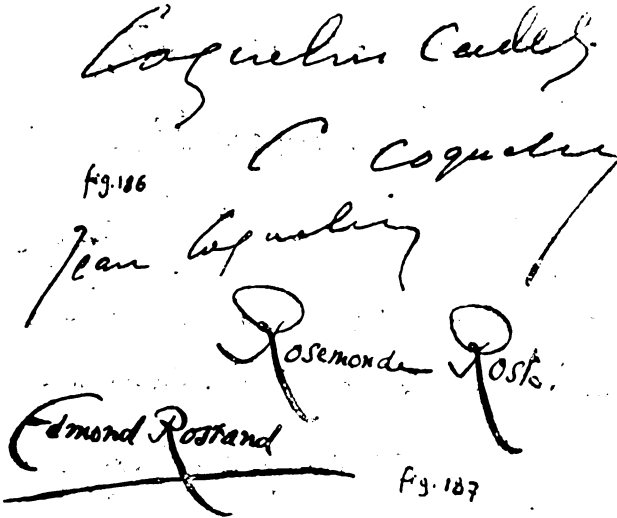 Coquelin Cadet
C Coquelin
fig.186
Jean Coquelin
Rosemonde Rost.
Edmond Rostand
fig.187